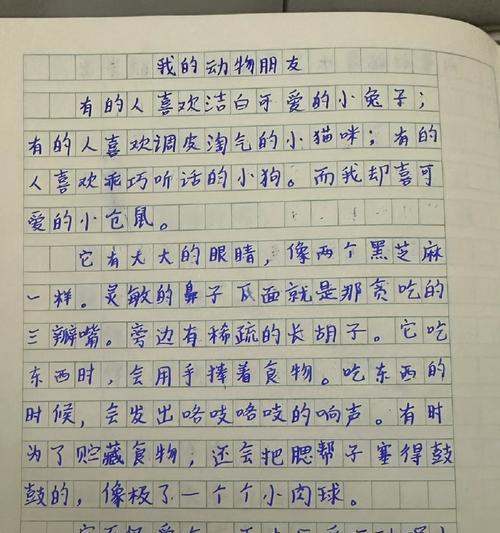 我的动物朋友
有的人喜欢洁白可爱的小兔子；
有的人喜欢调皮淘气的小猫咪；有的
人喜欢乖巧听话的小狗。而我却喜可
爱的小仓鼠。
它有大大的眼睛，像两个黑芝麻
一样。灵敏的鼻子下面就是那贪吃的
三瓣嘴。旁边有稀疏的长胡子。它吃
东西时，会用手捧着食物。吃东西的
时候，会发出咯吱咯吱的响声。有时
为了贮藏食物；还会把腮帮子塞得鼓
鼓的，像极了一个个小肉球。